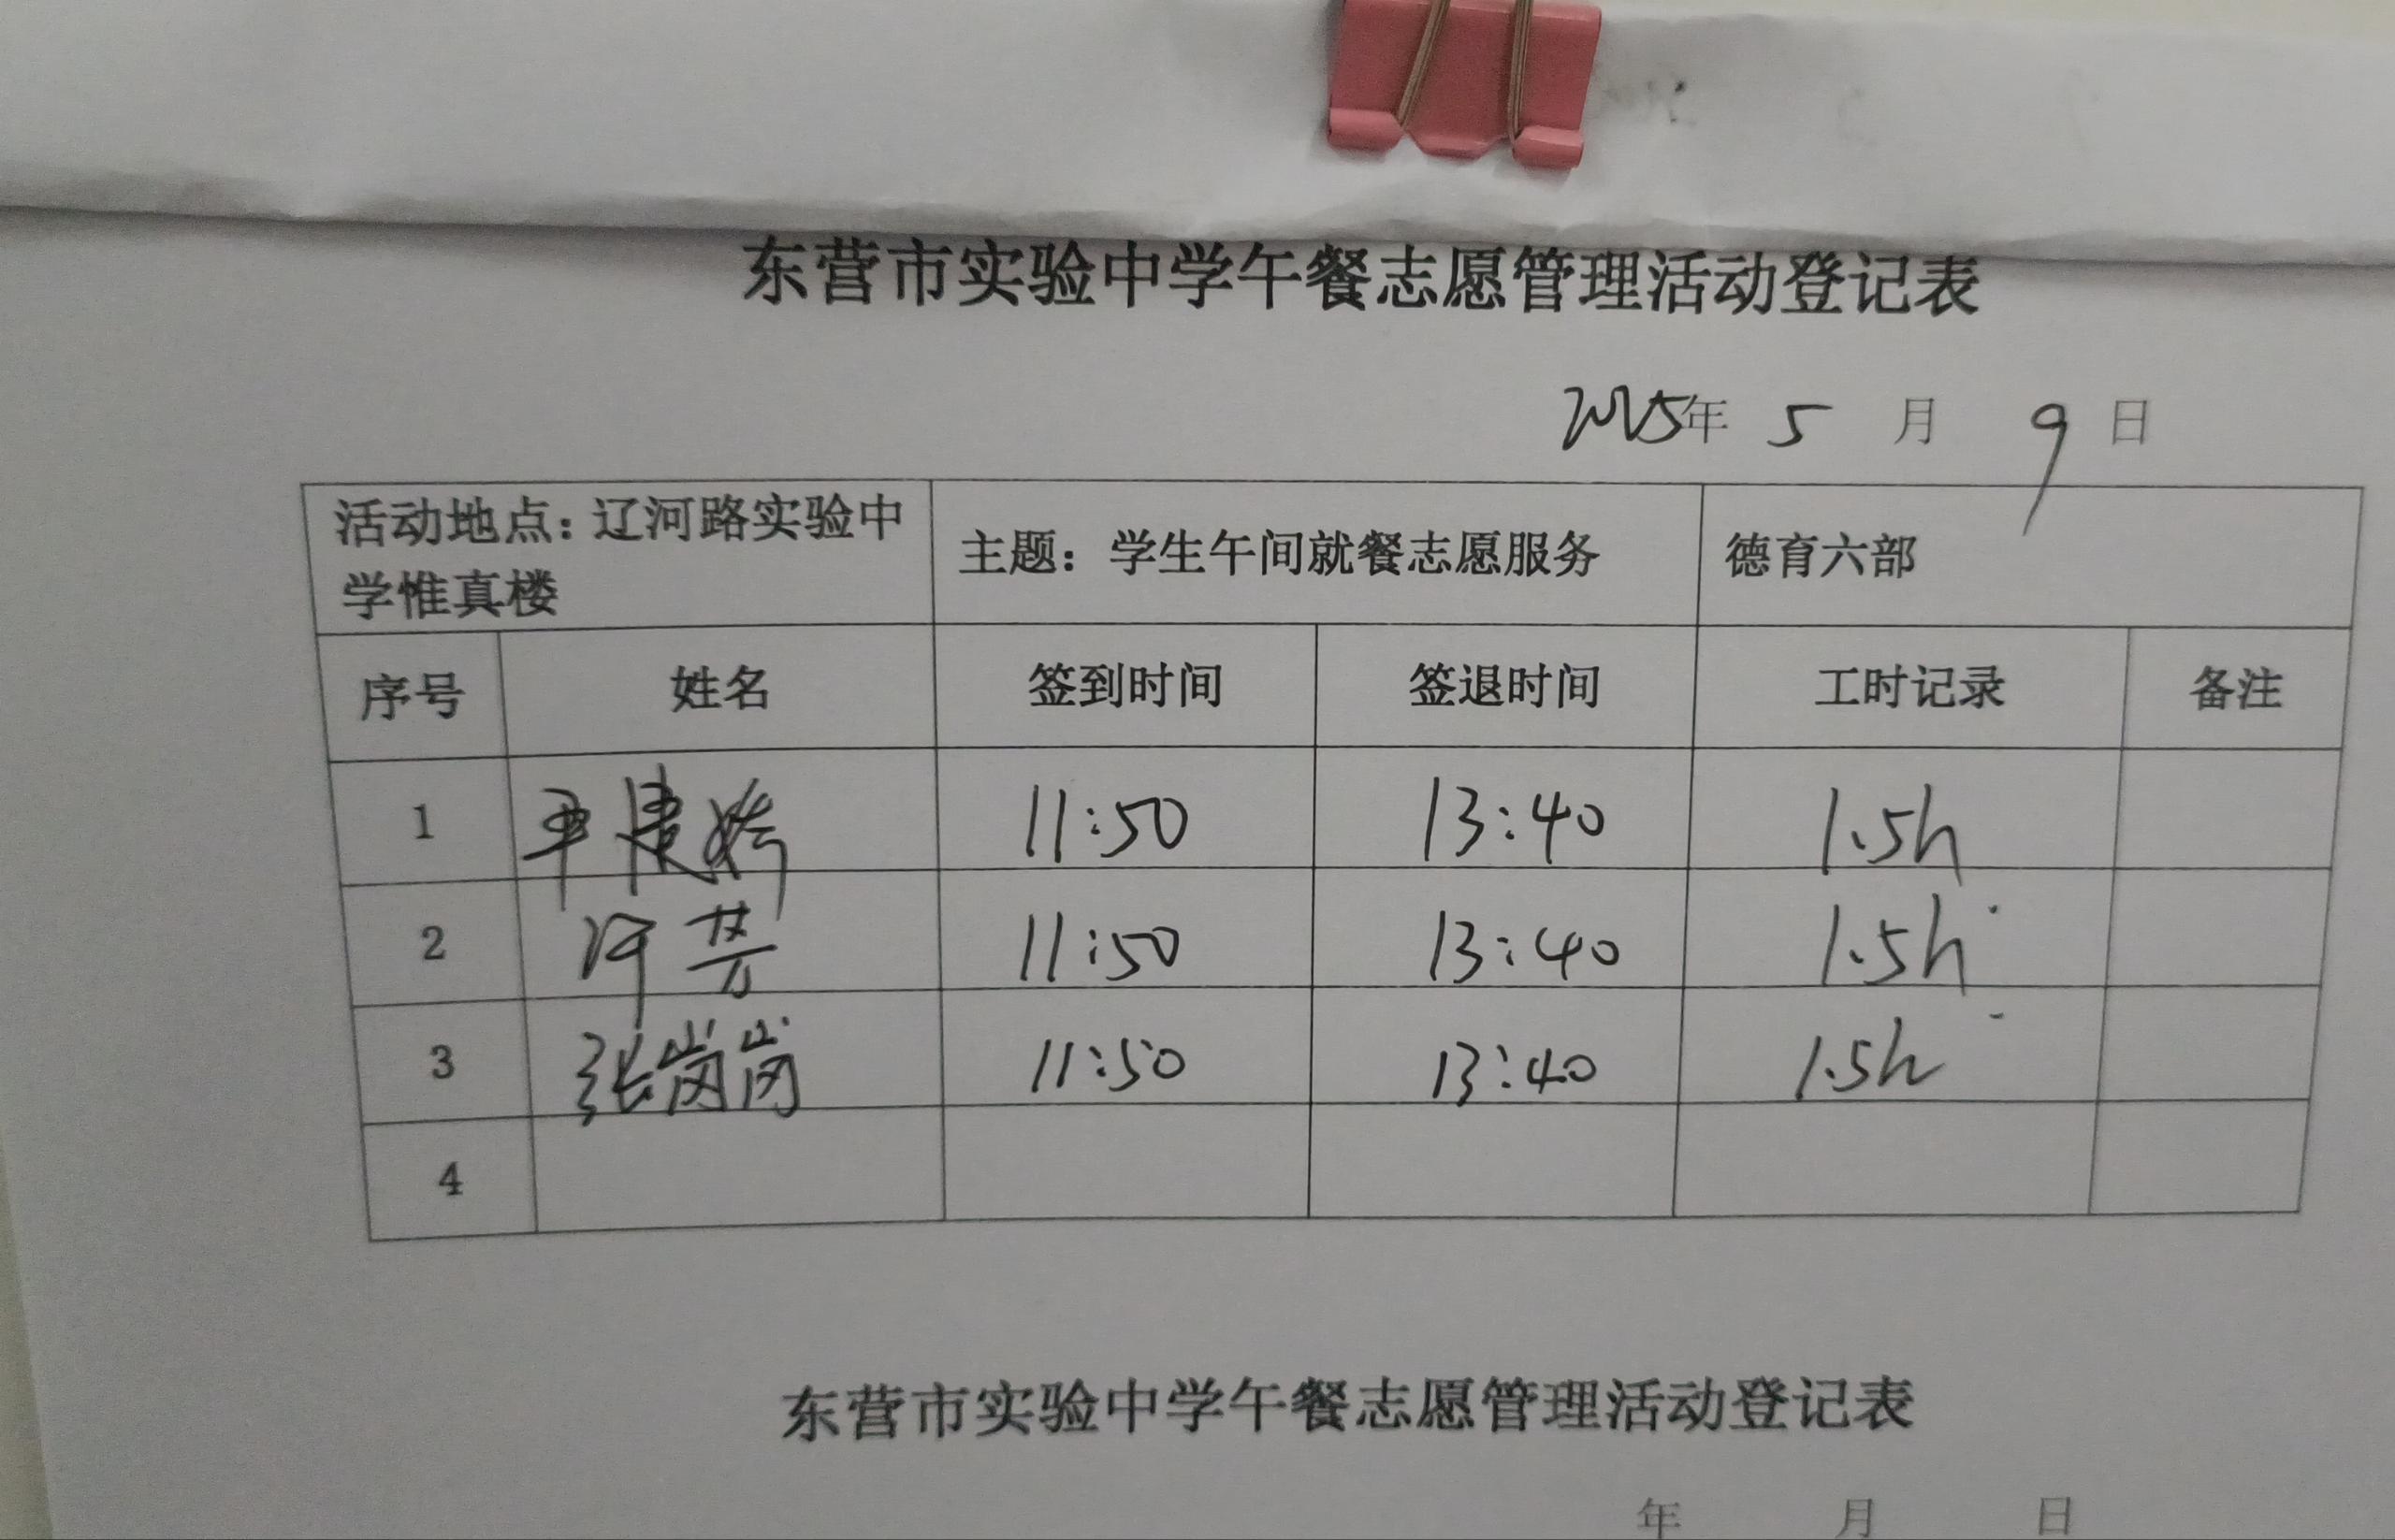 东营市实验中学午餐志愿管理活动登记表
2025年 5 月 9 日
活动地点：辽河路实验中学惟真楼 主题：学生午间就餐志愿服务 德育六部
序号 姓名 签到时间 签退时间 工时记录 备注
1 11:50 13:40 1.5h
2 许芳 11:50 13:40 1.5h
3 张岗岗 11:50 13:40 1.5h
4
东营市实验中学午餐志愿管理活动登记表
年 月 日